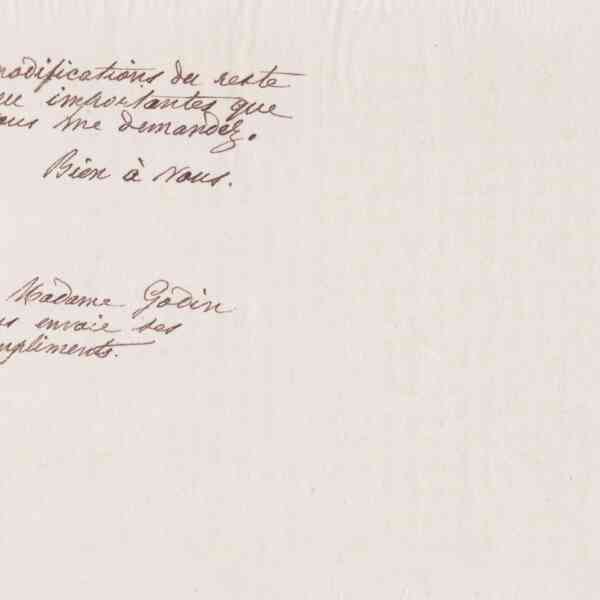 modifications du reste
peu importantes que
vous me demandez.
Bien à vous.
Madame Godin
vous envoie ses
compliments.